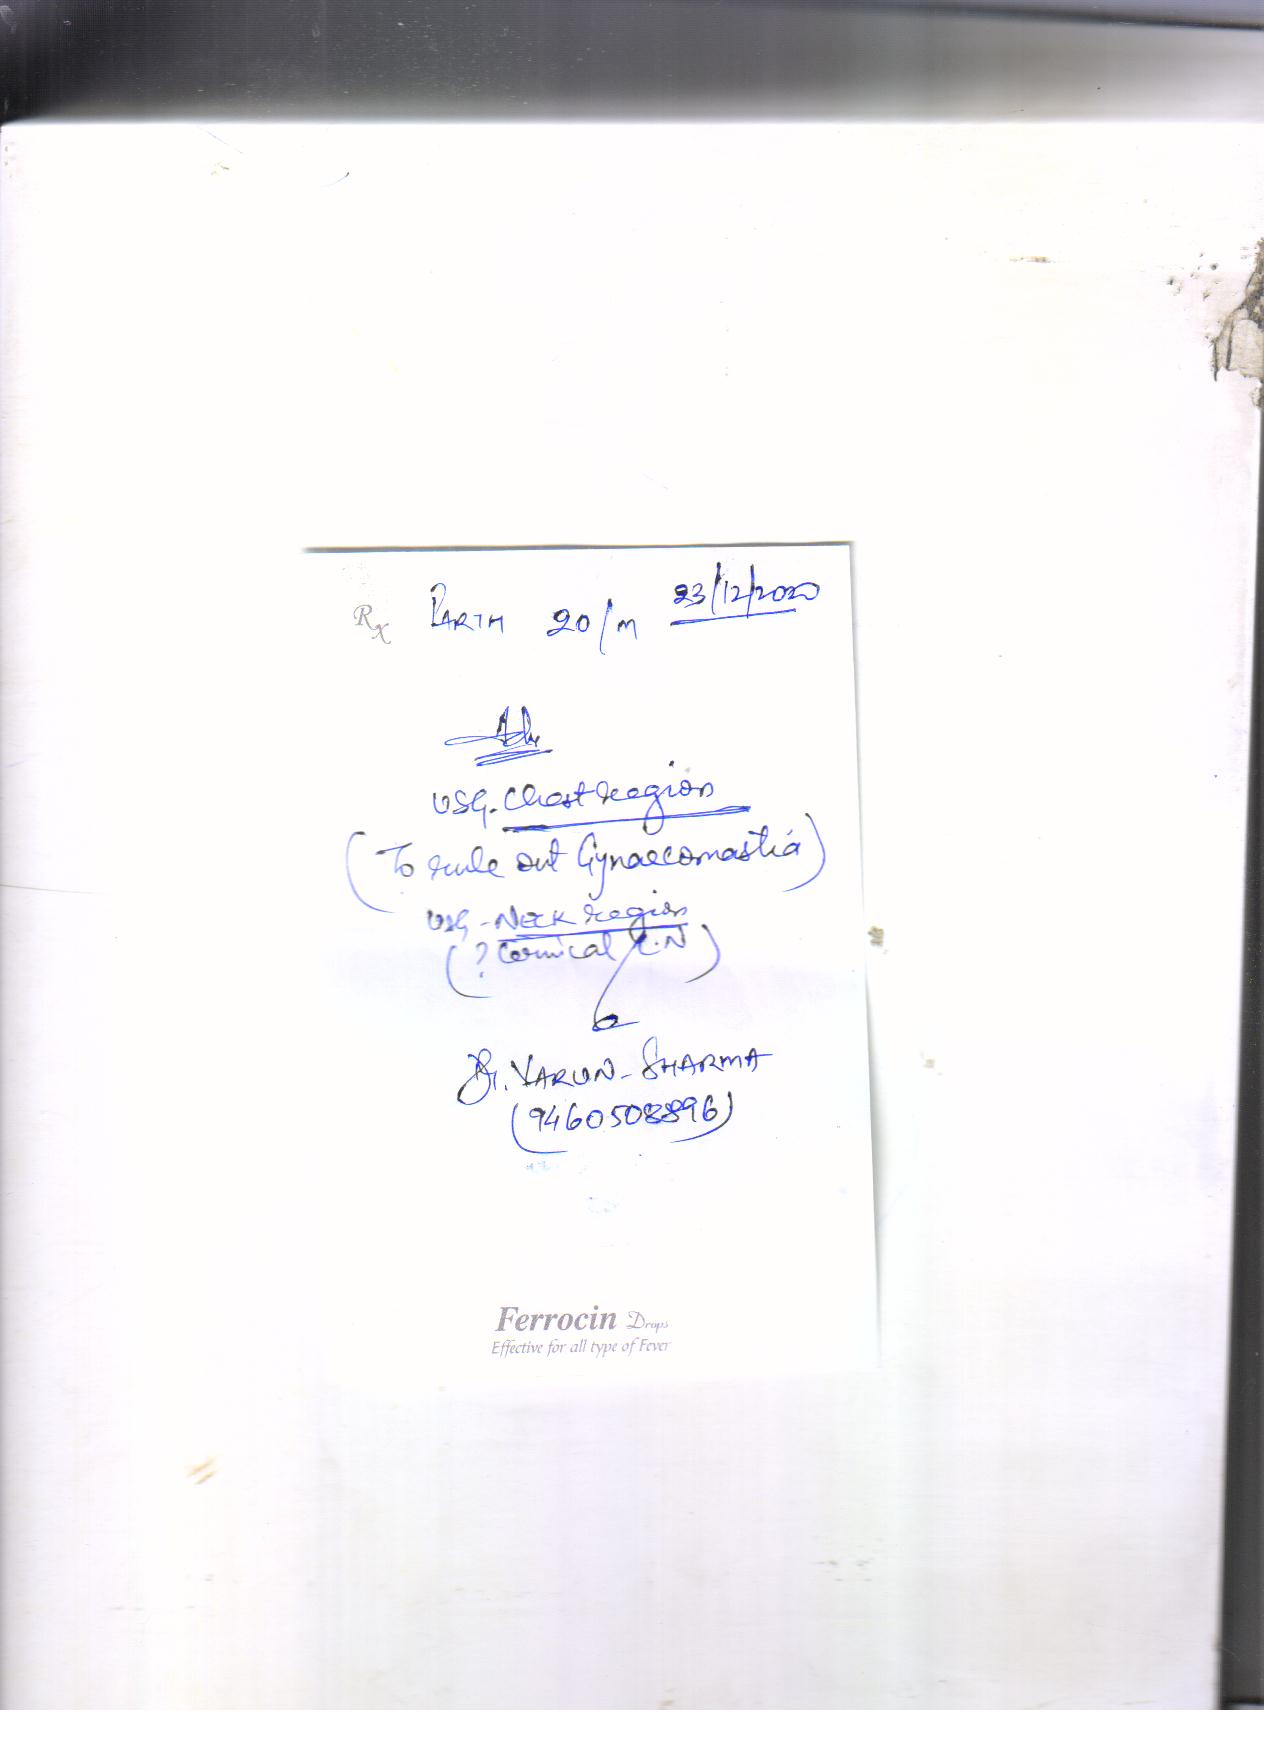 Rx PARTH 20/M 23/12/2020
Adv
USG. Chest region
(To rule out Gynaecomastia)
USG - Neck region
(? Cervical L.N)
Dr. VARUN - SHARMA
(9460508896)
Ferrocin Drops
Effective for all type of Fever